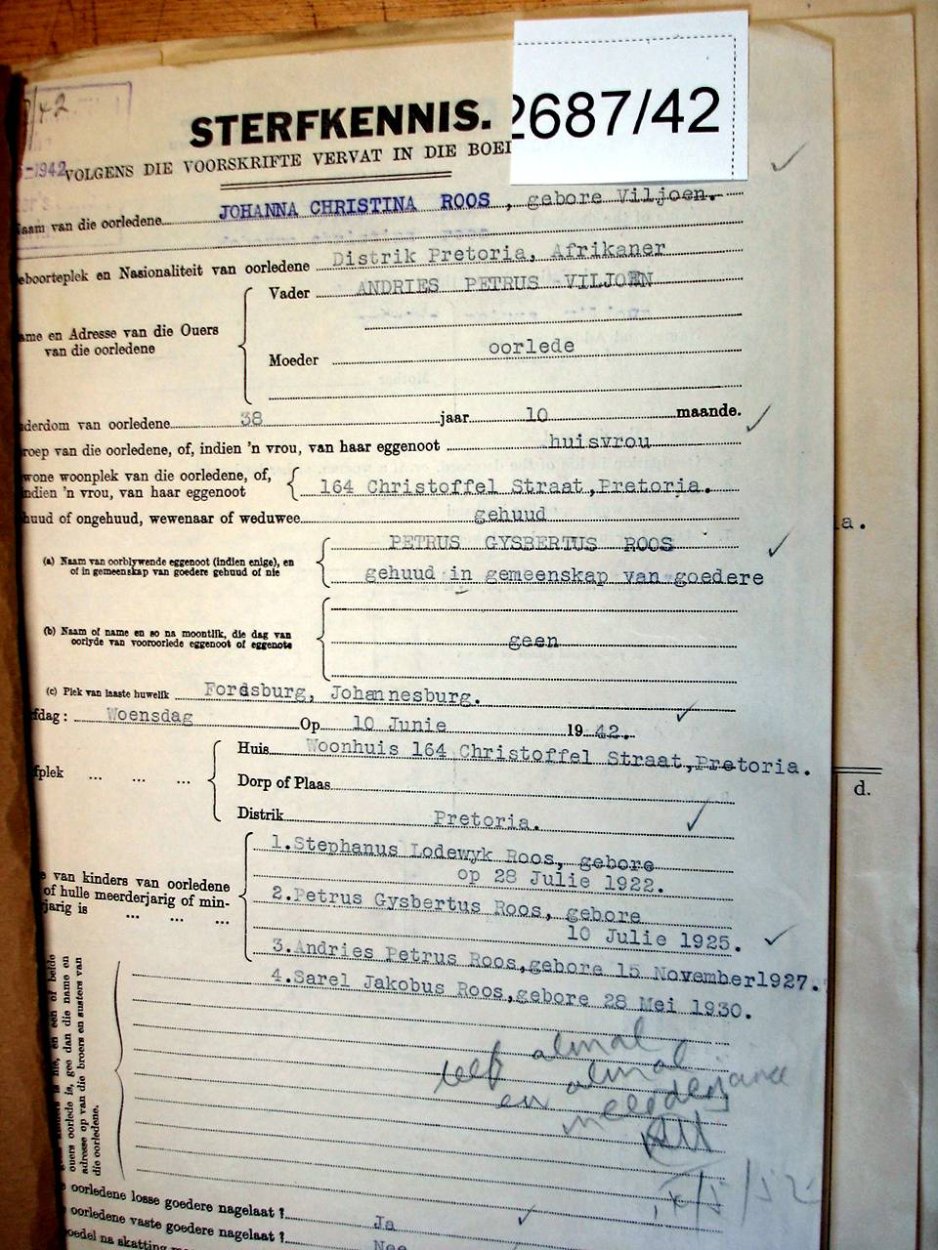 /42
2687/42
STERFKENNIS.
-1942
VOLGENS DIE VOORSKRIFTE VERVAT IN DIE BOE
aam van die oorledene JOHANNA CHRISTINA ROOS , gebore Viljoen.
eboorteplek en Nasionaliteit van oorledene Distrik Pretoria, Afrikaner
ame en Adresse van die Ouers
van die oorledene
Vader ANDRIES PETRUS VILJOEN
Moeder oorlede
derdom van oorledene 38 jaar 10 maande.
roep van die oorledene, of, indien 'n vrou, van haar eggenoot huisvrou
wone woonplek van die oorledene, of,
ndien 'n vrou, van haar eggenoot
164 Christoffel Straat,Pretoria.
huud of ongehuud, wewenaar of weduwee gehuud
(a) Naam van oorblywende eggenoot (indien enige), en
of in gemeenskap van goedere gehuud of nie
PETRUS GYSBERTUS ROOS
gehuud in gemeenskap van goedere
(b) Naam of name en so na moontlik, die dag van
oorlyde van vooroorlede eggenoot of eggenote
geen
(c) Plek van laaste huwelik Fordsburg, Johannesburg.
fdag : Woensdag Op 10 Junie 19 42.
fplek ... ... ...
Huis Woonhuis 164 Christoffel Straat,Pretoria.
Dorp of Plaas
Distrik Pretoria.
van kinders van oorledene
of hulle meerderjarig of min-
jarig is ... ... ...
1.Stephanus Lodewyk Roos, gebore
op 28 Julie 1922.
2.Petrus Gysbertus Roos, gebore
10 Julie 1925.
3.Andries Petrus Roos,gebore 15 November1927.
4.Sarel Jakobus Roos,gebore 28 Mei 1930.
ouers oorlede is, gee dan die name en
adresse op van die broers en susters van
die oorledene.
almal
leef almal
en
oorledene losse goedere nagelaat ? Ja
oorledene vaste goedere nagelaat ? Nee
oedel na skatting
a.
d.